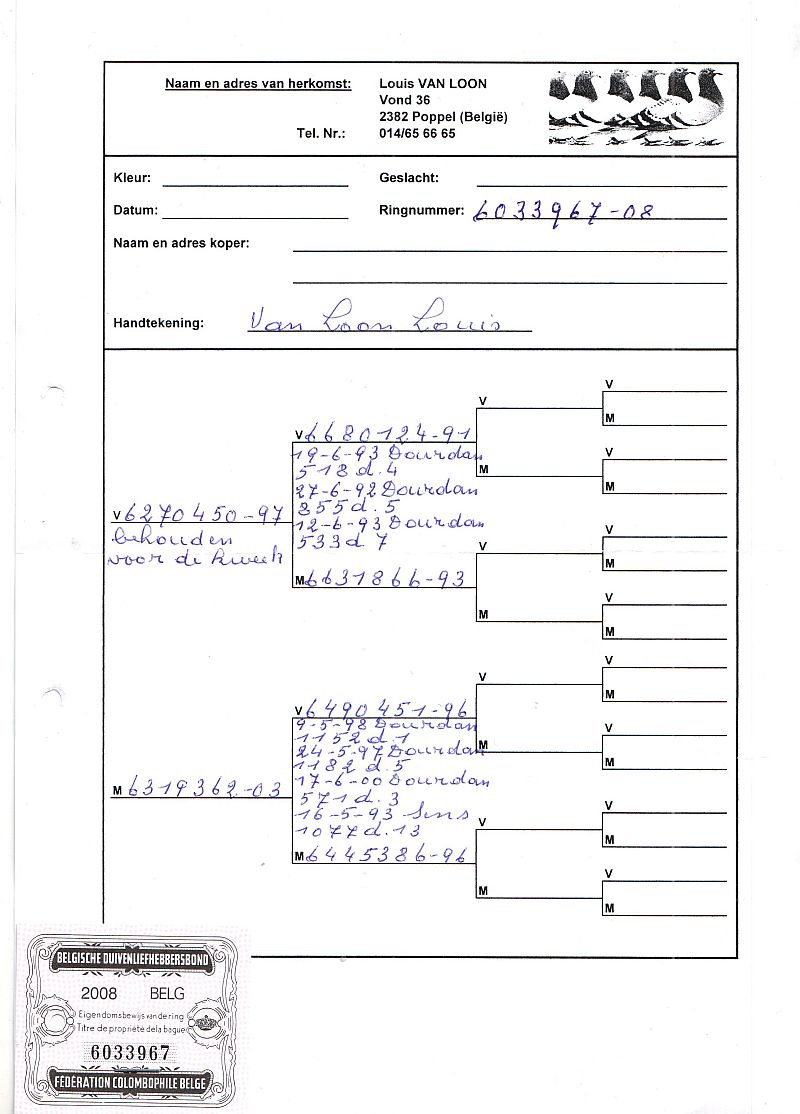 Naam en adres van herkomst: Louis VAN LOON
Vond 36
2382 Poppel (België)
Tel. Nr.: 014/65 66 65
Kleur: Geslacht:
Datum: Ringnummer: 6033967-08
Naam en adres koper:
Handtekening: Van Loon Louis
V
M
V
V 6680124-91
19-6-93 Dourdan
518 d. 4
27-6-92 Dourdan
855 d. 5
12-6-93 Dourdan
533 d. 7
M
V
M
V 6270450-97
behouden
voor de kweek
V
M
V
M 6631866-93
M
V
M
V
M
V
V 6490451-96
9-5-98 Dourdan
1152 d. 1
24-5-97 Dourdan
1182 d. 5
17-6-00 Dourdan
571 d. 3
16-5-93 Sens
1077 d. 13
M
V
M
M 6319362-03
V
M
V
M 6445386-96
M
V
M
BELGISCHE DUIVENLIEFHEBBERSBOND
2008 BELG
Eigendomsbewijs van de ring
Titre de propriété de la bague
6033967
FÉDÉRATION COLOMBOPHILE BELGE